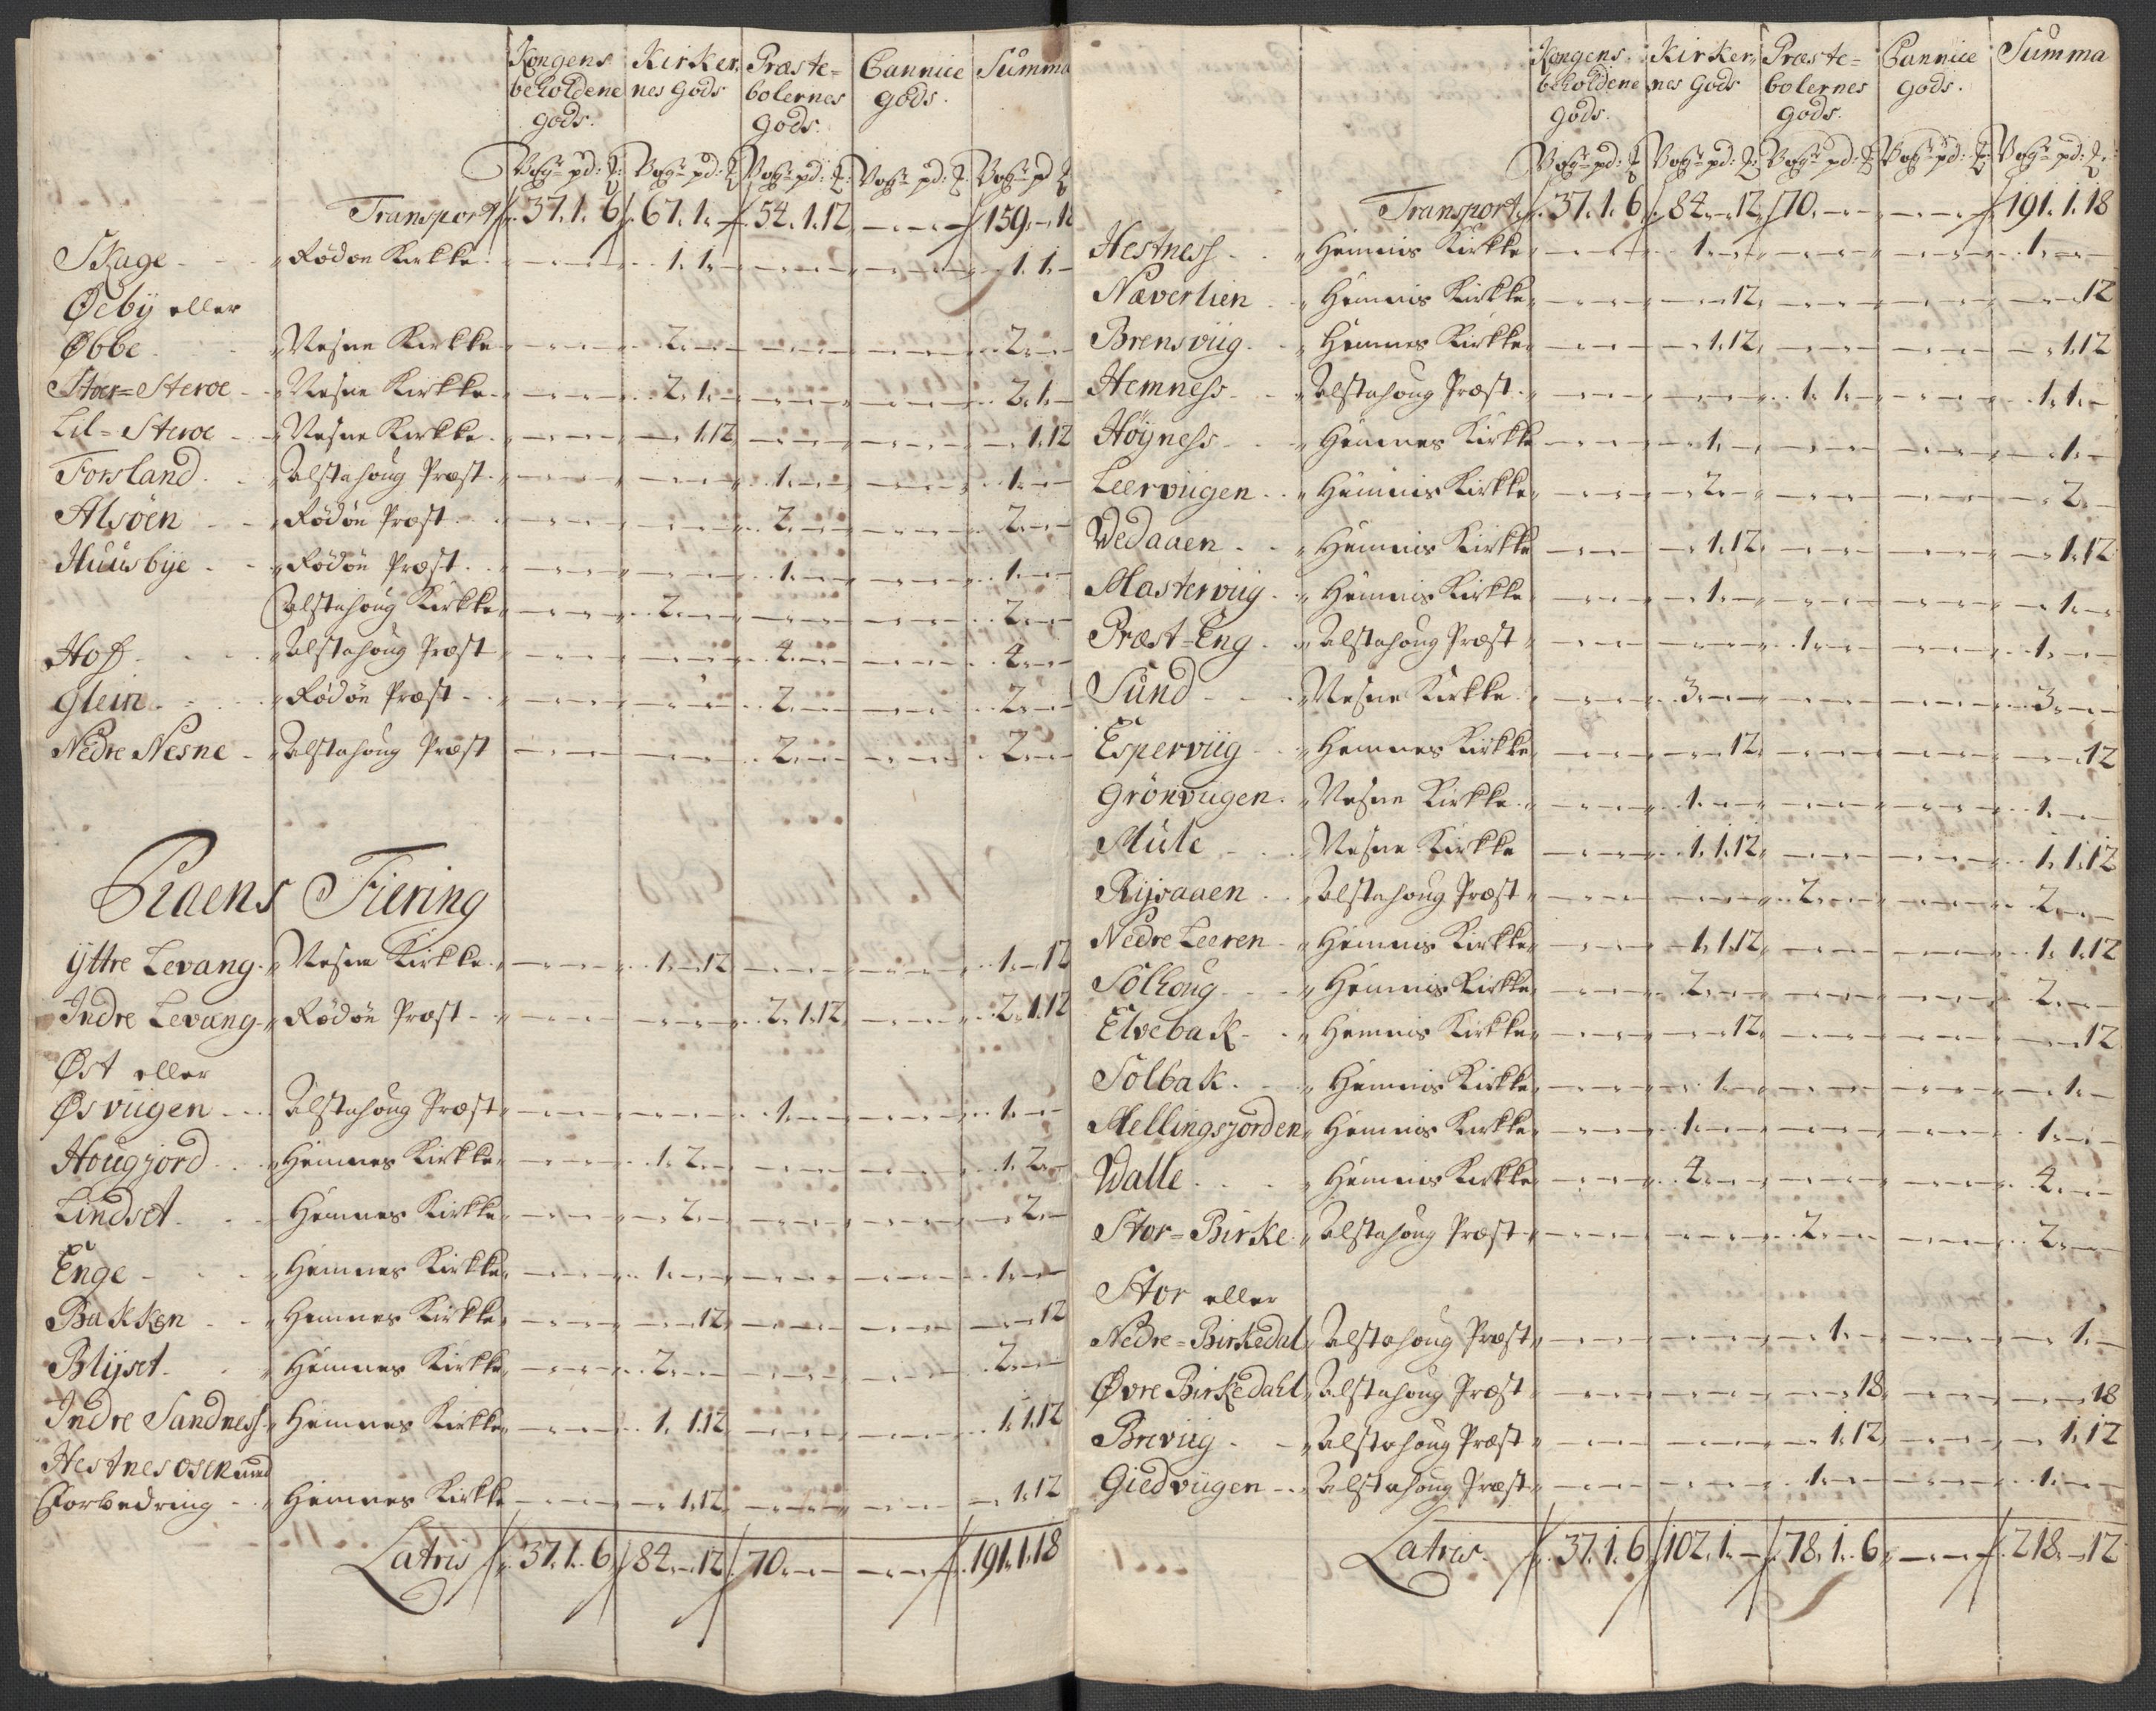 Kongens beholdene gods. Kirkernes gods Præstebolernes gods. Cannice gods. Summa
Vogr pd: Vogr pd: Vogr pd: Vogr pd: Vogr pd
Transport 37. 1. 6 67. 1. - 54. 1. 12 - - - 159. - 18
Skage - Rödöe Kirkke - 1. 1. - 1. 1. -
Øeby eller
Øbbe - Nesne Kirkke - 2. - - 2. - -
Stor=Steroe - Nesne Kirkke - 2. 1. - 2. 1. -
Lil=Steroe - Nesne Kirkke - 1. 12 - 1. 12
Forsland - Alstahoug Præst - 1. - - 1. - -
Alsöen - Rödöe Præst - 2. - - 2. - -
Huusbye - Rödöe Præst - 1. - - 1. - -
Alstahoug Kirkke - 2. - - 2. - -
Hoff - Alstahoug Præst - 4. - - 4. - -
Glein - Rödöe Præst - 2. - - 2. - -
Nedre Nesne - Alstahoug Præst - 2. - - 2. - -
Fiering
Yttre Levang - Nesne Kirkke - 1. - 12 - 1. - 12
Indre Levang - Rödöe Præst - 2. 1. 12 - 2. 1. 12
Øst eller
Øsviigen - Alstahoug Præst - 1. - - 1. - -
Hougjord - Hemnes Kirkke - 1. 2. - 1. 2. -
Lindset - Hemnes Kirkke - 2. - - 2. -
Enge - Hemnes Kirkke - 1. - - 1. - -
Bakken - Hemnes Kirkke - 12 - 12
Blijset - Hemnes Kirkke - 2. - - 2. - -
Indre Sandness - Hemnes Kirkke - 1. 1. 12 - 1. 1. 12
Hestnesosen med
Forbedring - Hemnes Kirkke - 1. 12 - 1. 12
Latris 37. 1. 6 84. - 12 70. - - - - - 191. 1. 18
Kongens beholdene gods. Kirkernes gods Præstebolernes gods. Cannice gods. Summa
Vogr pd: Vogr pd: Vogr pd: Vogr pd: Vogr pd:
Transport 37. 1. 6 84. - 12 70. - - - - - 191. 1. 18
Hestness - Hemnis Kirkke - 1. - - 1. - -
Næverlien - Hemnis Kirkke - 12 - 12
Brensviig - Hemnes Kirkke - 1. 12 - 1. 12
Hemness - Alstahoug Præst - 1. 1. - 1. 1. -
Höÿness - Hemnes Kirkke - 1. - - 1. -
Leerviigen - Hemnis Kirkke - 2. - - 2. -
Vedaaen - Hemnis Kirkke - 1. 12 - 1. 12
Masterviig - Hemnis Kirkke - 1. - - 1. -
Præst=Eng - Alstahoug Præst - 1. - - 1. - -
Sund - Nesne Kirkke - 3. - - 3. - -
Esperviig - Hemnes Kirkke - 12 - 12
Grönviigen - Nesne Kirkke - 1. - - 1. - -
Mule - Nesne Kirkke - 1. 1. 12 - 1. 1. 12
Rijsaaen - Alstahoug Præst - 2. - - 2. - -
Nedre Leeren - Hemnis Kirkke - 1. 1. 12 - 1. 1. 12
Solhoug - Hemnis Kirkke - 2. - - 2. - -
Elvebak - Hemnis Kirkke - 12 - 12
Solbak - Hemnis Kirkke - 1. - - 1. -
Mellingsjorden - Hemnis Kirkke - 1. - - 1. - -
Walle - Hemnis Kirkke - 4. - - 4. - -
Stor=Birke - Alstahoug Præst - 2. - - 2. - -
Stor eller
Nedre=Birkedal - Alstahoug Præst - 1. - - 1. -
Øvre Birkedahl - Alstahoug Præst - 18 - 18
Breviig - Alstahoug Præst - 1. 12 - 1. 12
Giedviigen - Alstahoug Præst - 1. - - 1. - -
Latris 37. 1. 6 102. 1. - 78. 1. 6 - - - 218. - 12